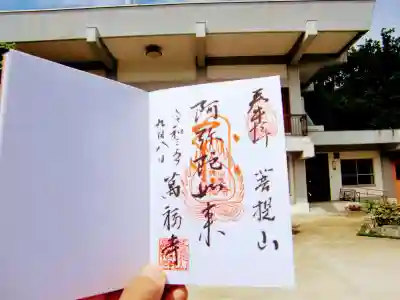 奉拝
菩提山
阿弥陀如来
令和三年
九月八日
萬福寺